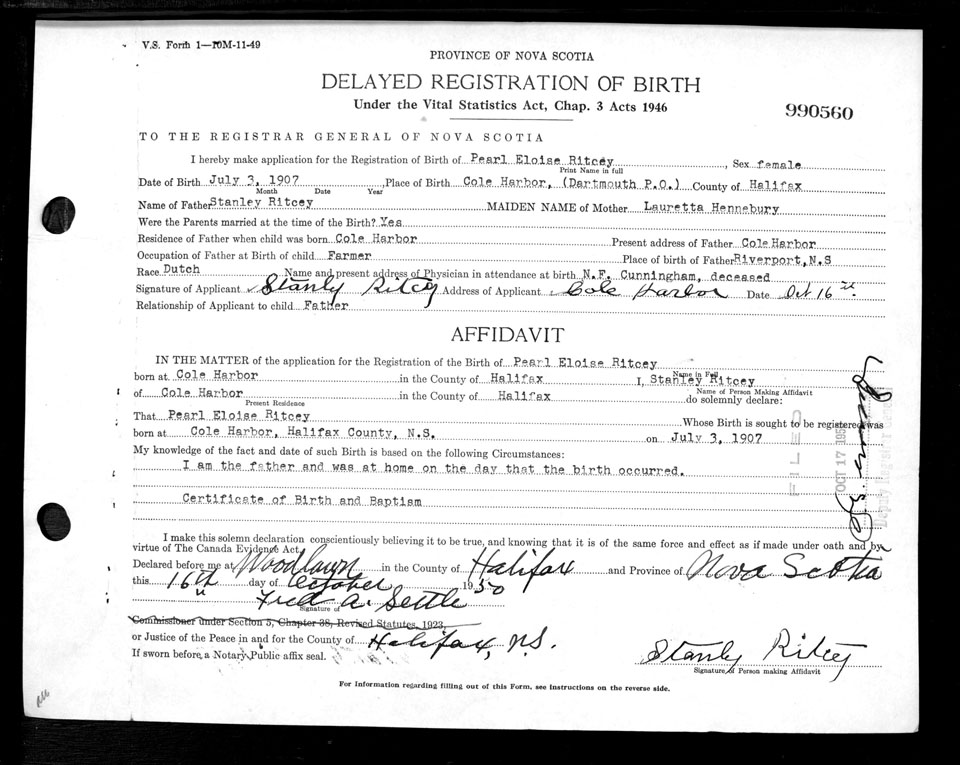 V.S. Form 1—10M-11-49
PROVINCE OF NOVA SCOTIA
DELAYED REGISTRATION OF BIRTH
Under the Vital Statistics Act, Chap. 3 Acts 1946
990560
TO THE REGISTRAR GENERAL OF NOVA SCOTIA
I hereby make application for the Registration of Birth of Pearl Eloise Ritcey, Sex female
Print Name in full
Date of Birth July 3, 1907, Place of Birth Cole Harbor, (Dartmouth P.O.) County of Halifax
Month Date Year
Name of Father Stanley Ritcey MAIDEN NAME of Mother Lauretta Hennebury
Were the Parents married at the time of the Birth? Yes
Residence of Father when child was born Cole Harbor Present address of Father Cole Harbor
Occupation of Father at Birth of child Farmer Place of birth of Father Riverport, N.S
Race Dutch Name and present address of Physician in attendance at birth N.F. Cunningham, deceased
Signature of Applicant Stanly Ritcey Address of Applicant Cole Harbor Date Oct 16
Relationship of Applicant to child Father
AFFIDAVIT
IN THE MATTER of the application for the Registration of the Birth of Pearl Eloise Ritcey
Name in Full
born at Cole Harbor in the County of Halifax I, Stanley Ritcey
Name of Person Making Affidavit
of Cole Harbor in the County of Halifax do solemnly declare:
Present Residence
That Pearl Eloise Ritcey Whose Birth is sought to be registered was
born at Cole Harbor, Halifax County, N.S. on July 3, 1907
My knowledge of the fact and date of such Birth is based on the following Circumstances:
I am the father and was at home on the day that the birth occurred.
Certificate of Birth and Baptism
FILED
OCT 17 195
Deputy Registrar
I make this solemn declaration conscientiously believing it to be true, and knowing that it is of the same force and effect as if made under oath and by
virtue of The Canada Evidence Act.
Declared before me at Woodlawn in the County of Halifax and Province of Nova Scotia
this 16th day of October 1950
Fred A. Settle
Signature of
Commissioner under Section 5, Chapter 38, Revised Statutes, 1923,
or Justice of the Peace in and for the County of Halifax, N.S.
If sworn before a Notary Public affix seal.
Stanly Ritcey
Signature of Person making Affidavit
For Information regarding filling out of this Form, see instructions on the reverse side.